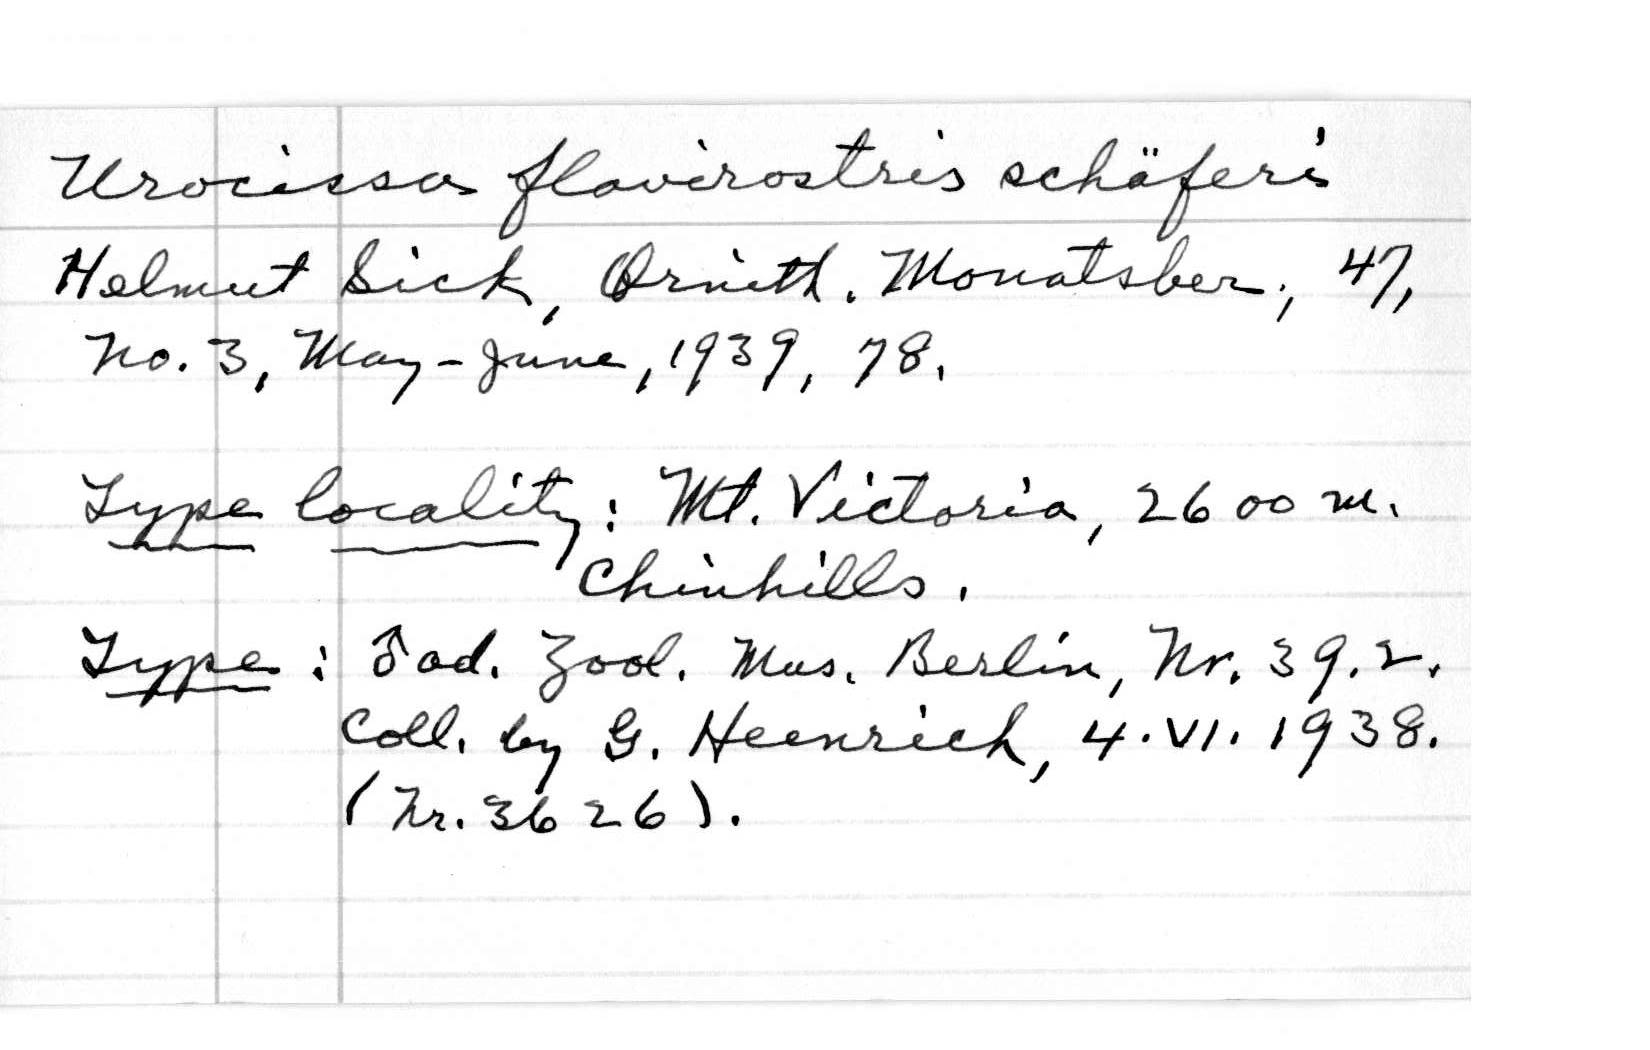 Urocissa flavirostris schäferi
Helmut Sick, Ornith. Monatsber., 47,
No. 3, May-June, 1939, 78.
Type locality: Mt. Victoria, 2600 m.
Chinhills.
Type: ♂ ad. Zool. Mus. Berlin, Nr. 39.2.
Coll. by G. Heinrich, 4.VI.1938.
(Nr. 3626).